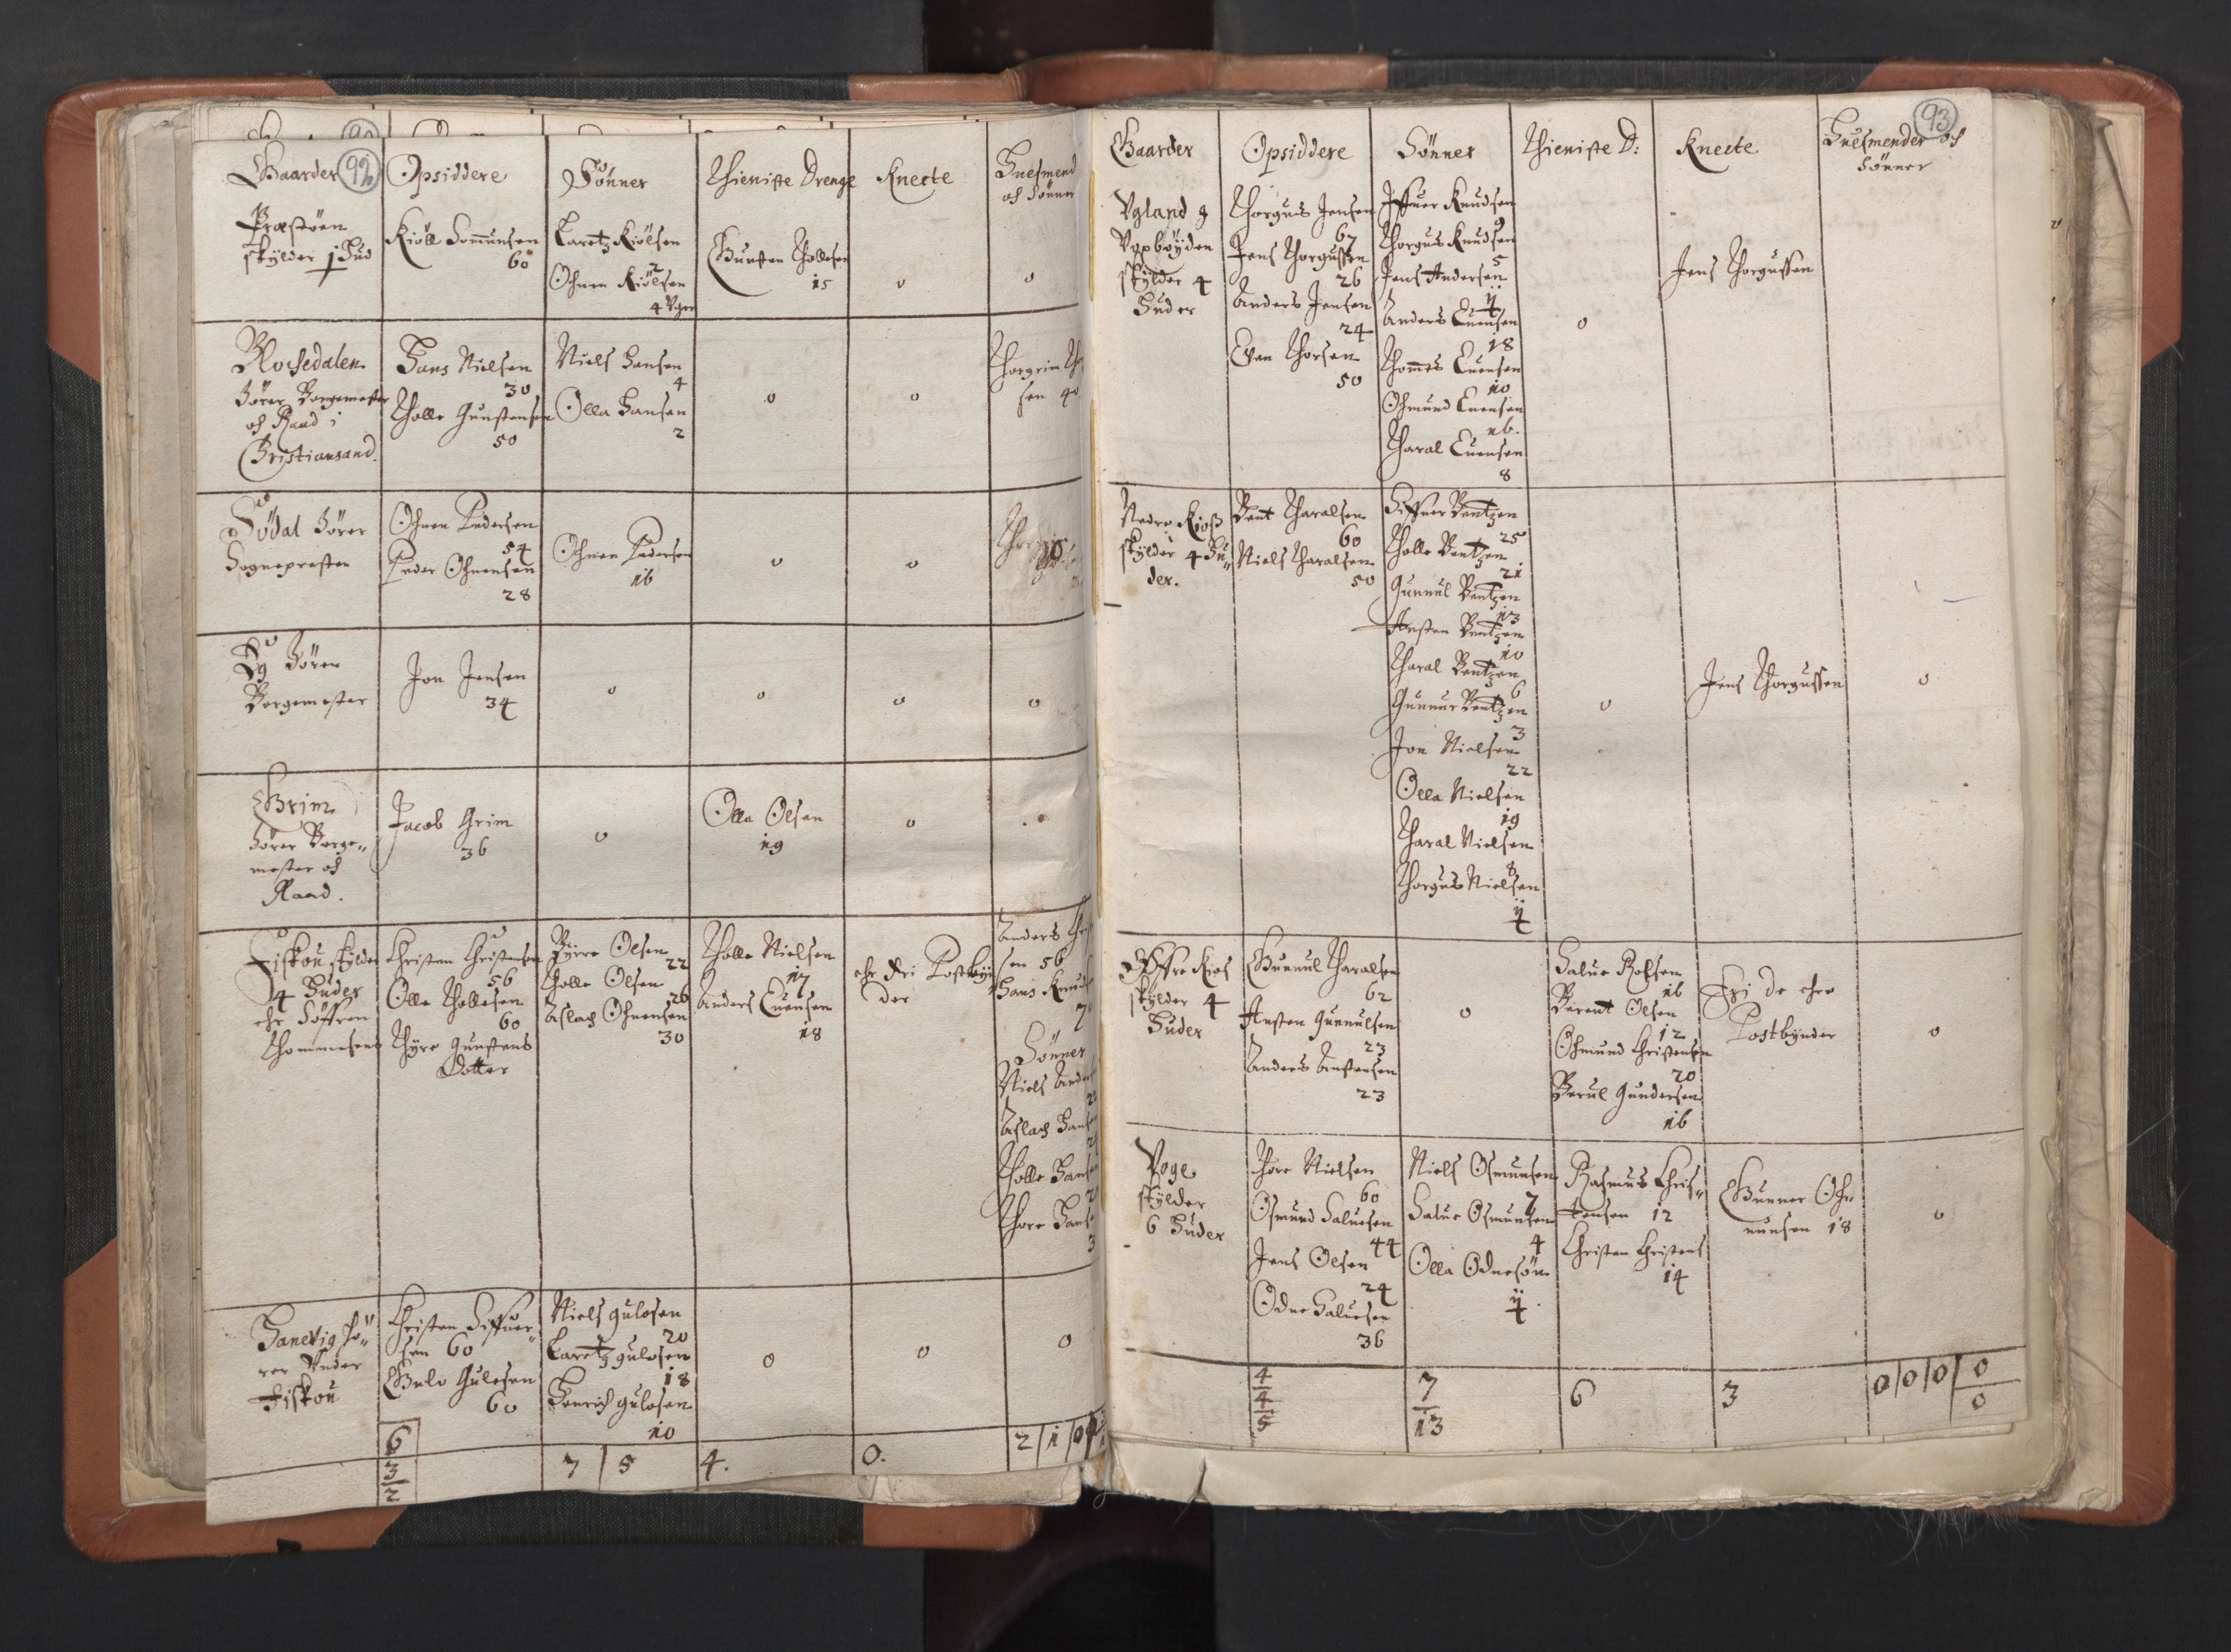 92
Gaarder
Opsiddere
Sönner
Thieniste Drenge
Knecte
Huesmend
och Sönner
Præstöen
skylder 1 Hud
Kiöll Sommunsen
60
Laretz Kiölsen
2
Ohnen Kiölsen
4 Vger
Gunsten Thollesen
15
0
0
Blochedalen
hörer Borgemester
och Raad i
Christiansand.
Hans Nielsen
30
Tholle Gunstensen
50
Niels Hansen
4
Olla Hansen
2
0
0
Thorgrim
sen 40
Södal hörer
Sognepresten
Ohnen Pedersen
54
Peder Ohnensen
28
Ohnen Pedersen
16
0
0
Eg hörer
Borgemester
Jon Jensen
34
0
0
0
0
Grim
hörer Borge-
mester och
Raad.
Jacob Grim
36
0
Olla Olsen
19
0
0
Fiskou skylder
4 Huder
ehr Söffren
Thommesens
Christen Christensen
56
Olle Thollesen
60
Thyre Gunstens
Dotter
Byrre Olsen
22
Tholle Olsen
26
Aslach Ohnensen
30
Tholle Nielsen
17
Anders Euensen
18
ehr dri Postbyn
der
Anders
sen 56
Hans Knuds
70
Sönner
Niels Anders
Aslach Hans
Tholle Hans
Thore Hans
3
Hanevig hö-
rer Vnder
Fiskou
Christen Siffuer-
sen 60
Gulo Gulosen
60
Niels Gulosen
20
Laretz Gulosen
18
Henrich Gulosen
10
0
0
0
6
3
2
7 | 5
4.
0.
2 | 1 | 0
93
Gaarder
Opsiddere
Sönner
Thieniste D:
Knecte
Huesmender och
Sönner
Vgland
Vgxböyden
skylder 4
Huder
Thorgus Jensen
67
Jens Thorgussen
26
Anders Jensen
24
Even Thorsen
50
Iffuer Knudsen
9
Thorgus Knudsen
5
Jens Andersen
4
Anders Euensen
18
Thommes Euensen
10
Ohmund Euensen
16.
Tharal Euensen
8
0
Jens Thorgussen
Nedre Kioss
skylder 4 Hu-
der.
Bent Tharalsen
60
Niels Tharalsen
50
Siffuer Bentzen
25
Tholle Bentzen
21
Gunnul Bentzen
13
Austen Bentzen
10
Tharal Bentzen
6
Gunnur Bentzen
3
Jon Nielsen
22
Olla Nielsen
19
Tharal Nielsen
8
Thorgus Nielsen
4
0
Jens Thorgussen
0
Öffre Kios
skylder 4
Huder
Gunnul Tharalsen
62
Austen Gunnulsen
23
Anders Austensen
23
0
Salue Rolfsen
16
Berent Olsen
12
Ohmund Christensen
20
Berul Gundersen
16
Fri de ehre
Postbynder
0
Voge
skylder
6 Huder
Thore Nielsen
60
Osmund Saluesen
44
Jens Olsen
24
Odne Saluesen
36
Niels Osmunsen
7
Salue Osmunsen
4
Olla Odnesön
4
Rasmus Chris-
tensen 12
Christen Christens
14
Gunner Oh-
nunsen 18
0
4
4
5
7
13
6
3
0 | 0 | 0 | 0
0